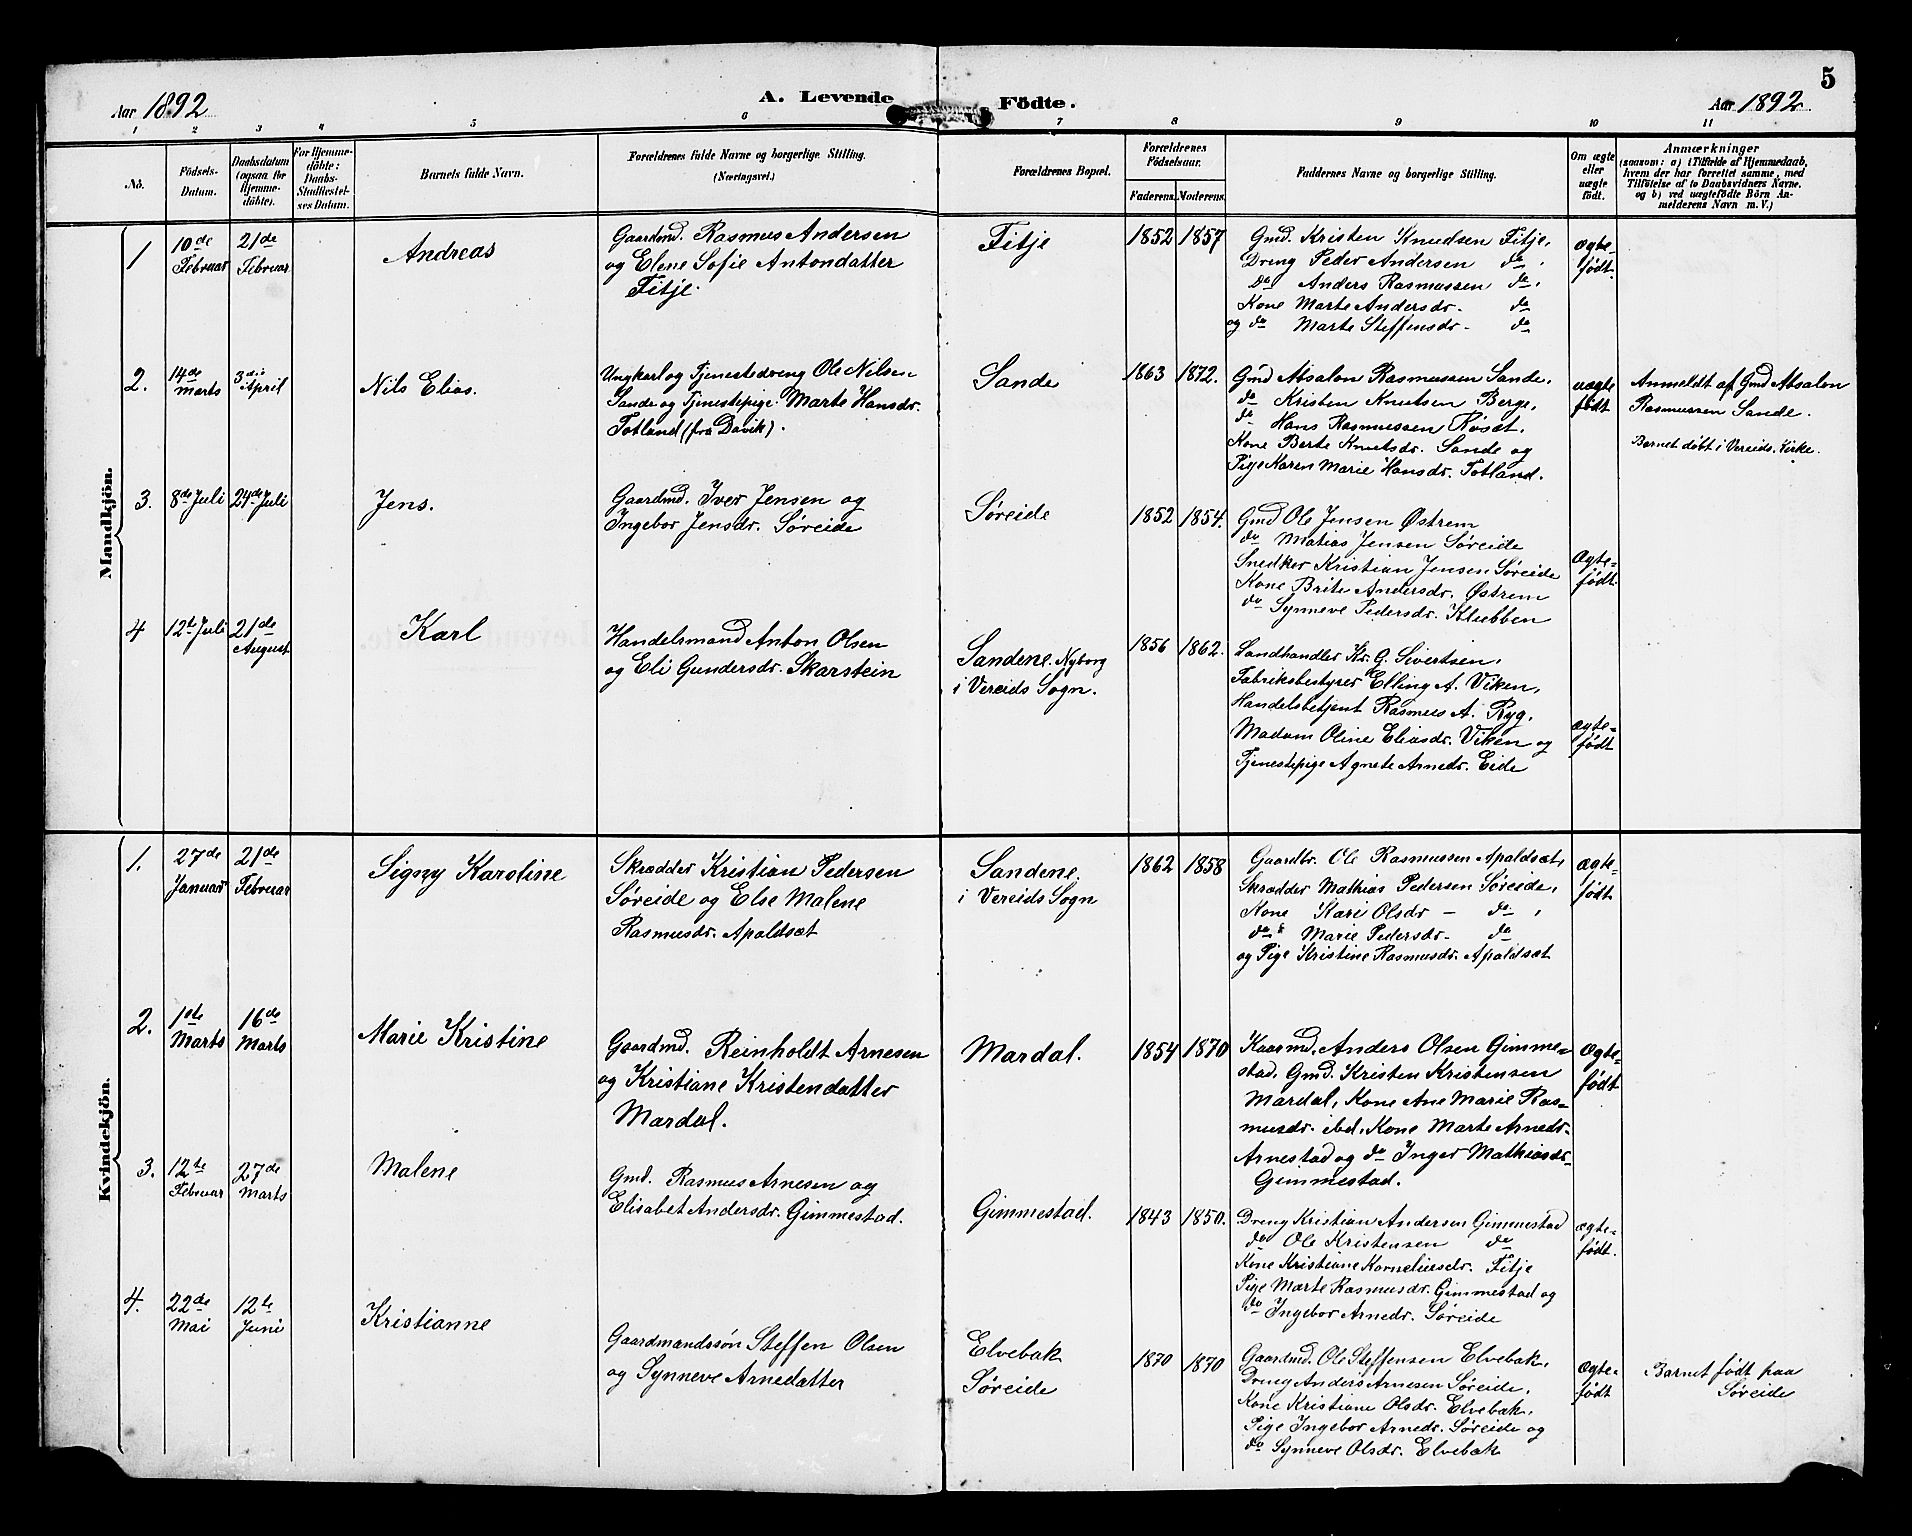 5
Aar 1892
A. Levende Födte.
Aar 1892
1 2 3 4 5 6 7 8 9 10 11
No.
Födsels-
Datum.
Daabsdatum
(ogsaa for
Hjemme-
döbte).
For Hjemme-
döbte:
Daabs-
Stadfæstel-
ses Datum.
Barnets fulde Navn.
Forældrenes fulde Navne og borgerlige Stilling.
(Næringsvei.)
Forældrenes Bopæl.
Forældrenes
Födselsaar.
Faderens. Moderens.
Faddernes Navne og borgerlige Stilling.
Om ægte
eller
uægte
födt.
Anmærkninger
(saasom: a) i Tilfælde af Hjemmedaab,
hvem der har forrettet samme, med
Tilföielse af to Daabsvidners Navne.
og b) ved uægtefödte Börn An-
melderens Navn m. V.)
Mandkjön.
1
10de
Februar
21de
Februar
Andreas
Gaardmd. Rasmus Andersen
og Elene Sofie Antondatter
Fitje.
Fitje
1852 1857
Gmd. Kristen Knudsen Fitje,
Dreng Peder Andersen do,
Do Anders Rasmussen do,
Kone Marte Andersdr. do
og do Marte Steffensdr. do
ægte-
født.
2.
14de
Marts
3die
April
Nils Elias.
Ungkarl og Tjenestedreng Ole Nilsen
Sande og Tjenestepige Marte Hansdr.
Totland (fra Davik).
Sande
1863 1872.
Gmd Absalon Rasmussen Sande,
do Kristen Knutsen Berge,
do Hans Rasmussen Røset,
Kone Berte Knutsdr. Sande og
Pige Karen Marie Hansdr. Totland.
uægte
født
Anmeldt af Gmd Absalon
Rasmussen Sande.
Barnet døbt i Vereids Kirke.
3.
8de Juli
24de Juli
Jens.
Gaardmd. Iver Jensen og
Ingebor Jensdr. Søreide
Søreide
1852 1854.
Gmd Ole Jensen Østrem
do Matias Jensen Søreide
Snedker Kristian Jensen Søreide
Kone Brite Andersdr. Østrem
do Synneve Pedersdr. Klubben
Ægte-
født
4
12te Juli
21de
August
Karl
Handelsmand Anton Olsen
og Eli Gundersdr. Skarstein
Sandene, Nyborg
i Vereids Sogn.
1856 1862.
Landhandler Kr. G. Sivertsen,
Fabriksbestyrer Elling A. Viken,
Handelsbetjent Rasmus A. Ryg,
Madam Oline Eliasdr. Viken og
Tjenestepige Agnete Arnedr. Eide
ægte-
født
Kvindekjön.
1.
27de
Januar
21de
Februar
Signy Karoline
Skrædder Kristian Pedersen
Søreide og Else Malene
Rasmusdr. Apaldsæt
Sandene.
i Vereids Sogn
1862 1858
Gaardbr. Ole Rasmussen Apaldsæt,
Skrædder Mathias Pedersen Søreide,
Kone Kari Olsdr — do,
do Marie Pedersdr. do
og Pige Kristine Rasmusdr. Apaldsæt
ægte-
født
2.
1ste
Marts
16de
Marts
Marie Kristine
Gaardmd. Reinholdt Arnesen
og Kristiane Kristendatter
Mardal.
Mardal.
1854 1870
Kaarmd. Anders Olsen Gimme-
stad, Gmd. Kristen Kristensen
Mardal, Kone Ane Marie Ras-
musdr. ibd, Kone Marte Arnedr.
Arnestad og do Inger Mathiasdr.
Gimmestad.
Ægte-
født
3.
12te
Februar
27de
Marts
Malene
Gmd. Rasmus Arnesen og
Elisabet Andersdr. Gimmestad.
Gimmestad.
1843 1850.
Dreng Kristian Andersen Gimmestad
do Ole Kristensen do
Kone Kristiane Korneliusdr. Fitje
Pige Marte Rasmusdr. Gimmestad og
do Ingebor Arnedr. Søreide
ægte-
født.
4.
22de
Mai
12te
Juni
Kristianne
Gaardmandssøn Steffen Olsen
og Synneve Arnedatter
Elvebak
Søreide
1870 1870
Gaardmd. Ole Steffensen Elvebak,
Dreng Anders Arnesen Søreide,
Kone Kristiane Olsdr. Elvebak,
Pige Ingebor Arnedr. Søreide og
do Synneve Olsdr. Elvebak
Ægte-
født
Barnet født paa
Søreide